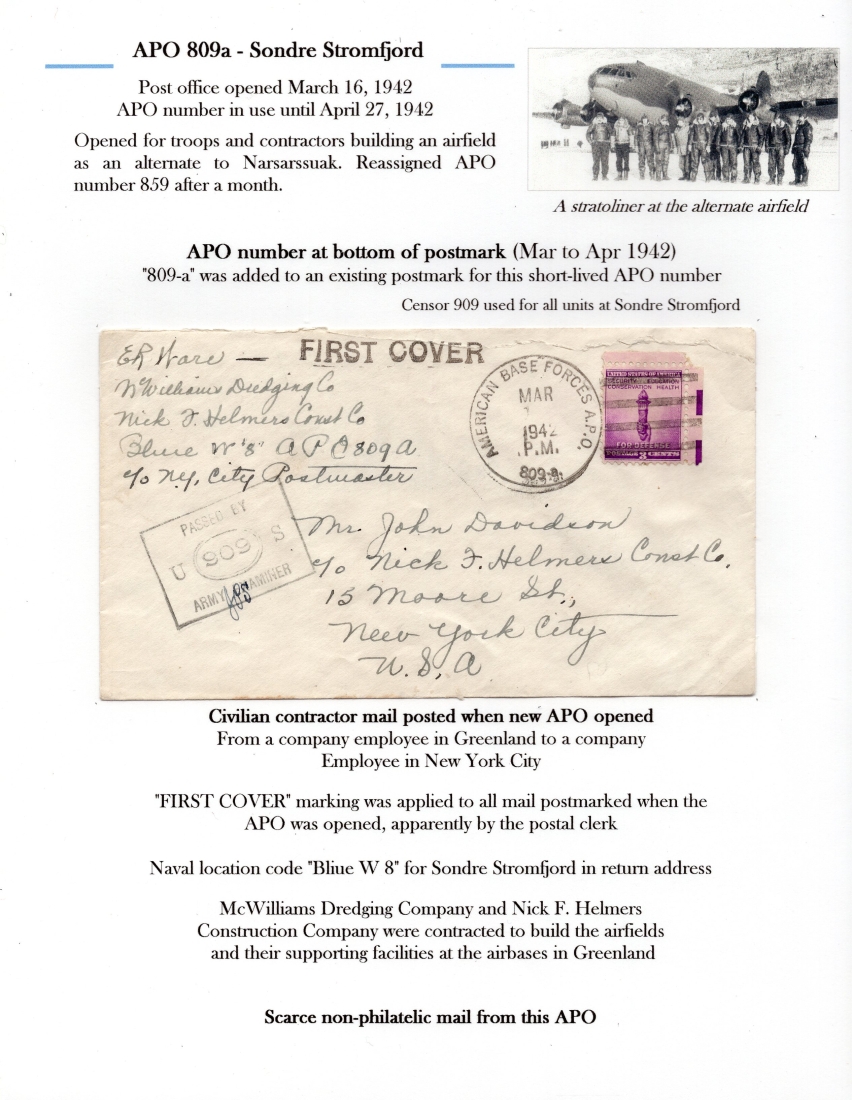 APO 809a - Sondre Stromfjord
Post office opened March 16, 1942
APO number in use until April 27, 1942
Opened for troops and contractors building an airfield
as an alternate to Narsarssuak. Reassigned APO
number 859 after a month.
A stratoliner at the alternate airfield
APO number at bottom of postmark (Mar to Apr 1942)
"809-a" was added to an existing postmark for this short-lived APO number
Censor 909 used for all units at Sondre Stromfjord
FIRST COVER
ER Ware —
McWilliams Dredging Co
Nick F. Helmers Const Co
Bluie W "8" A P O 809A
c/o N.Y. City Postmaster
AMERICAN BASE FORCES A.P.O.
MAR
1942
P.M.
809-a.
UNITED STATES OF AMERICA
SECURITY EDUCATION
CONSERVATION HEALTH
FOR DEFENSE
POSTAGE 3 CENTS
PASSED BY
U 909 S
ARMY EXAMINER
Mr. John Davidson
c/o Nick F. Helmers Const Co.
15 Moore St.,
New York City
U.S.A
Civilian contractor mail posted when new APO opened
From a company employee in Greenland to a company
Employee in New York City
"FIRST COVER" marking was applied to all mail postmarked when the
APO was opened, apparently by the postal clerk
Naval location code "Bliue W 8" for Sondre Stromfjord in return address
McWilliams Dredging Company and Nick F. Helmers
Construction Company were contracted to build the airfields
and their supporting facilities at the airbases in Greenland
Scarce non-philatelic mail from this APO